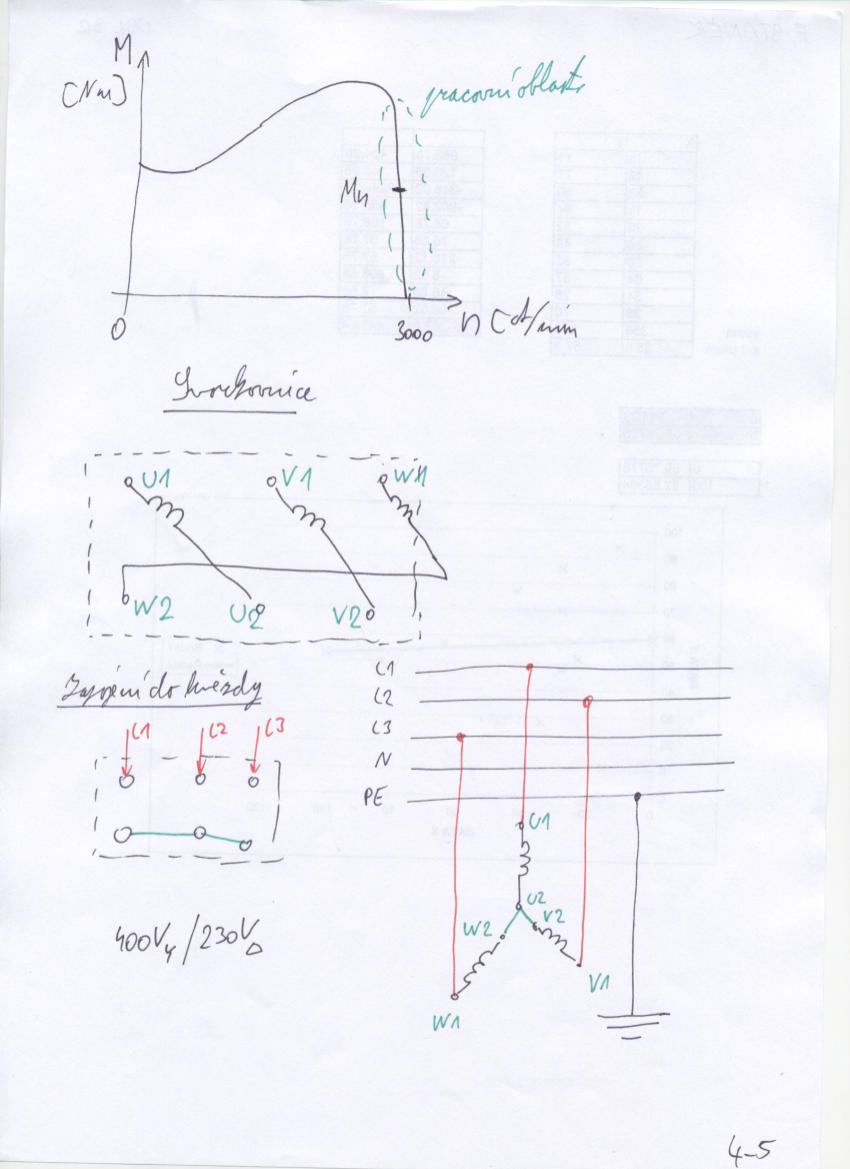 M
[Nm]
pracovní oblast
Mn
0
3000
n [ot/min
Svorkovnice
U1 V1 W1
W2 U2 V2
Zapojení do hvězdy
L1 L2 L3
400VY/230VΔ
L1
L2
L3
N
PE
U1
U2
V2
W2
V1
W1
4-5